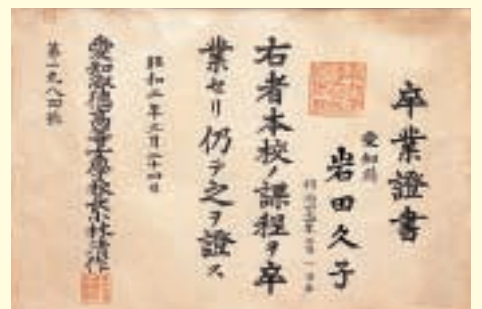 卒業證書
愛知縣
岩田久子
右者本校ノ課程ヲ卒
業セリ仍テ之ヲ證ス
昭和二年三月二十四日
愛知淑徳高等女學校長小林清作
第一九八四號